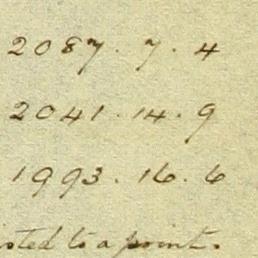 2087. 7. 4
2041. 14. 9
1993. 16. 6
sted to a point.